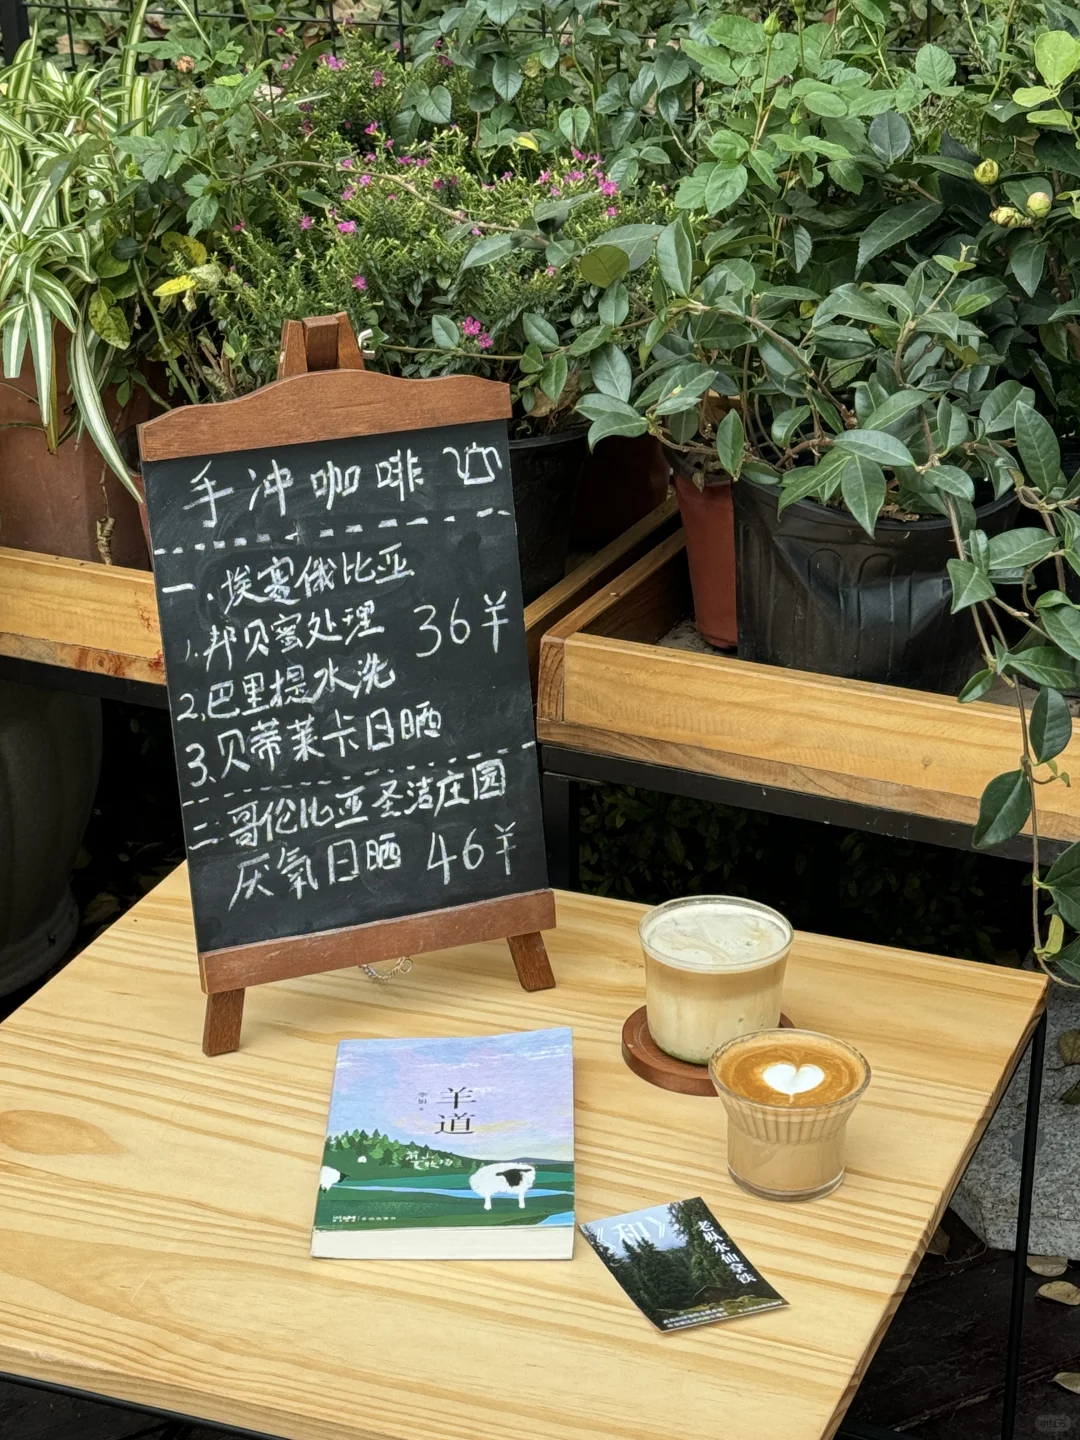 手冲咖啡
一、埃塞俄比亚
1.邦贝蜜处理 36¥
2.巴里提水洗
3.贝蒂莱卡日晒
二、哥伦比亚圣洁庄园
厌氧日晒 46¥
羊道
李娟 著
前山
夏牧场
《和》
老枞水仙拿铁
小红书